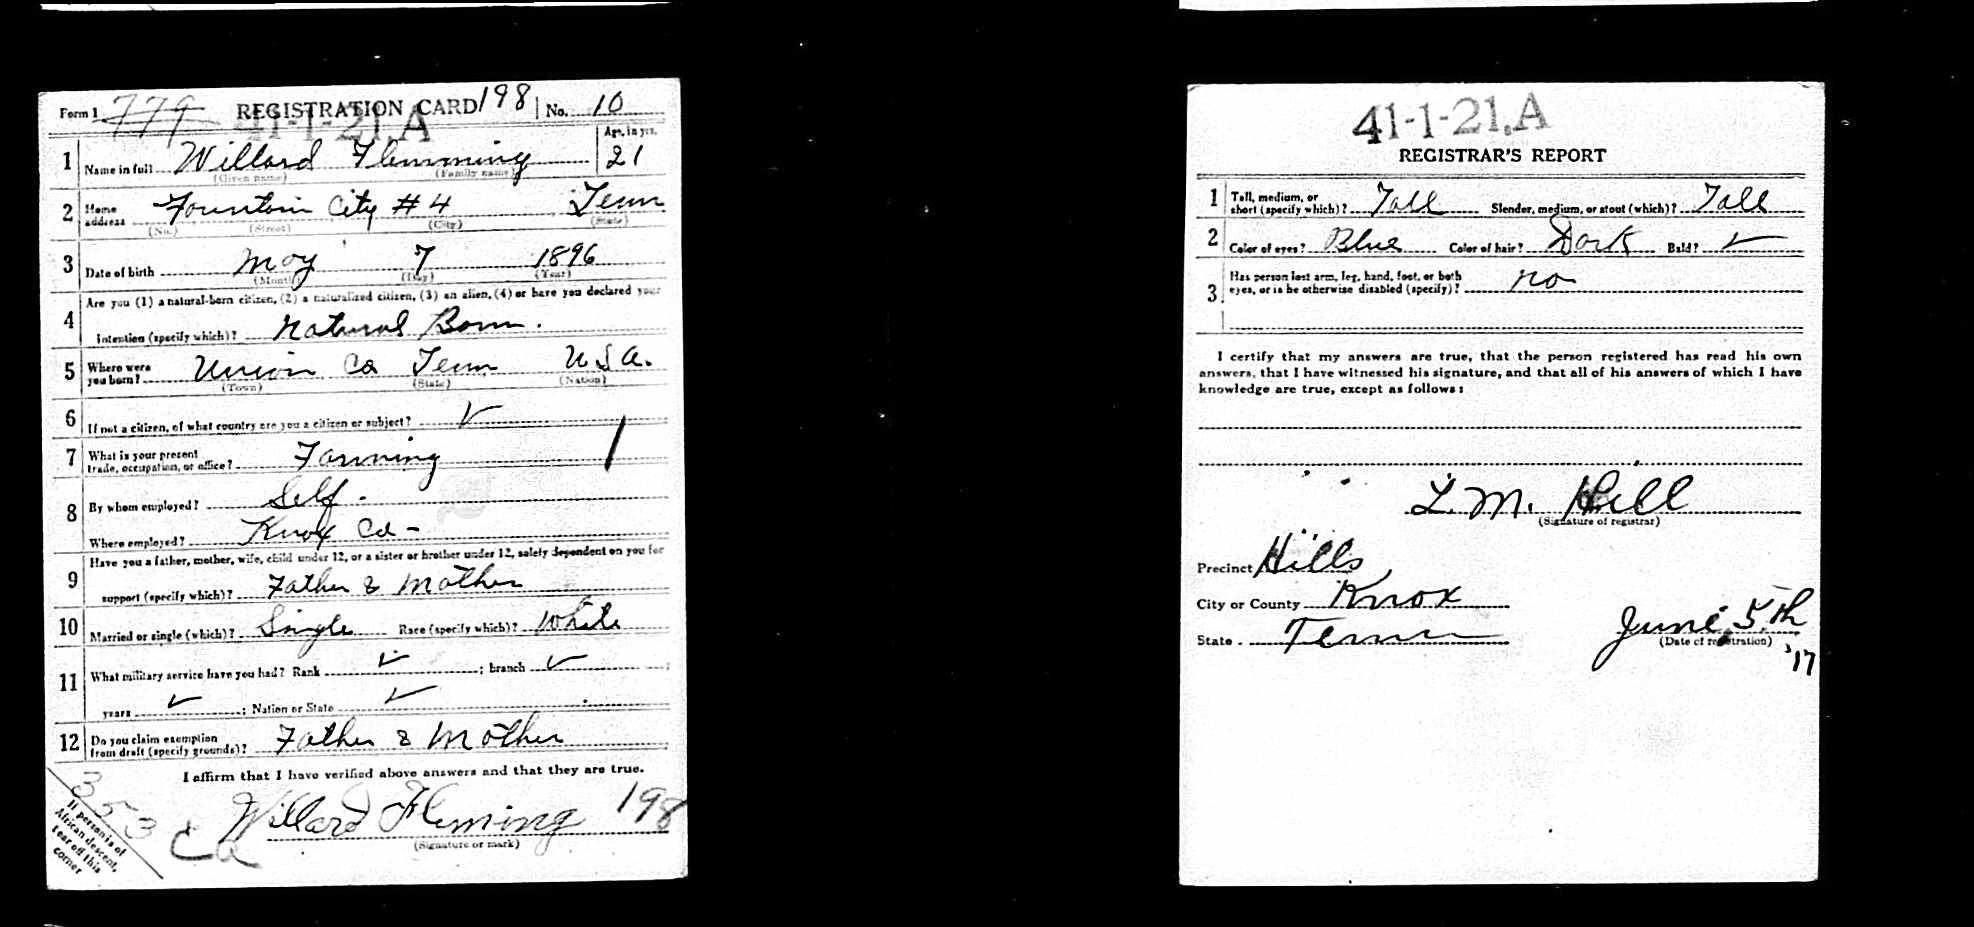 Form 1 779 REGISTRATION CARD 198 No. 10
41-1-21.A
Age, in yrs.
1 Name in full Willard Flemming 21
(Given name) (Family name)
2 Home address Fountain City # 4 Tenn
(No.) (Street) (City) (State)
3 Date of birth May 7 1896
(Month) (Day) (Year)
Are you (1) a natural-born citizen, (2) a naturalized citizen, (3) an alien, (4) or have you declared your
4 intention (specify which)? Natural Born.
5 Where were you born? Union Co Tenn U.S.A.
(Town) (State) (Nation)
6 If not a citizen, of what country are you a citizen or subject? ✓
7 What is your present trade, occupation, or office? Farming
8 By whom employed? Self -
Where employed? Knox Co -
Have you a father, mother, wife, child under 12, or a sister or brother under 12, solely dependent on you for
9 support (specify which)? Father & Mother
10 Married or single (which)? Single Race (specify which)? White
11 What military service have you had? Rank ✓ ; branch ✓ ;
years ✓ ; Nation or State ✓
12 Do you claim exemption from draft (specify grounds)? Father & Mother
I affirm that I have verified above answers and that they are true.
Willard Fleming 198
(Signature or mark)
353
If person is of
African descent,
tear off this
corner
41-1-21.A
REGISTRAR'S REPORT
1 Tall, medium, or short (specify which)? Tall Slender, medium, or stout (which)? Tall
2 Color of eyes? Blue Color of hair? Dark Bald? ✓
3 Has person lost arm, leg, hand, foot, or both eyes, or is he otherwise disabled (specify)? no
I certify that my answers are true, that the person registered has read his own
answers, that I have witnessed his signature, and that all of his answers of which I have
knowledge are true, except as follows:
L.M. Hill
(Signature of registrar)
Precinct Hills
City or County Knox
State Tenn June 5th
(Date of registration) '17